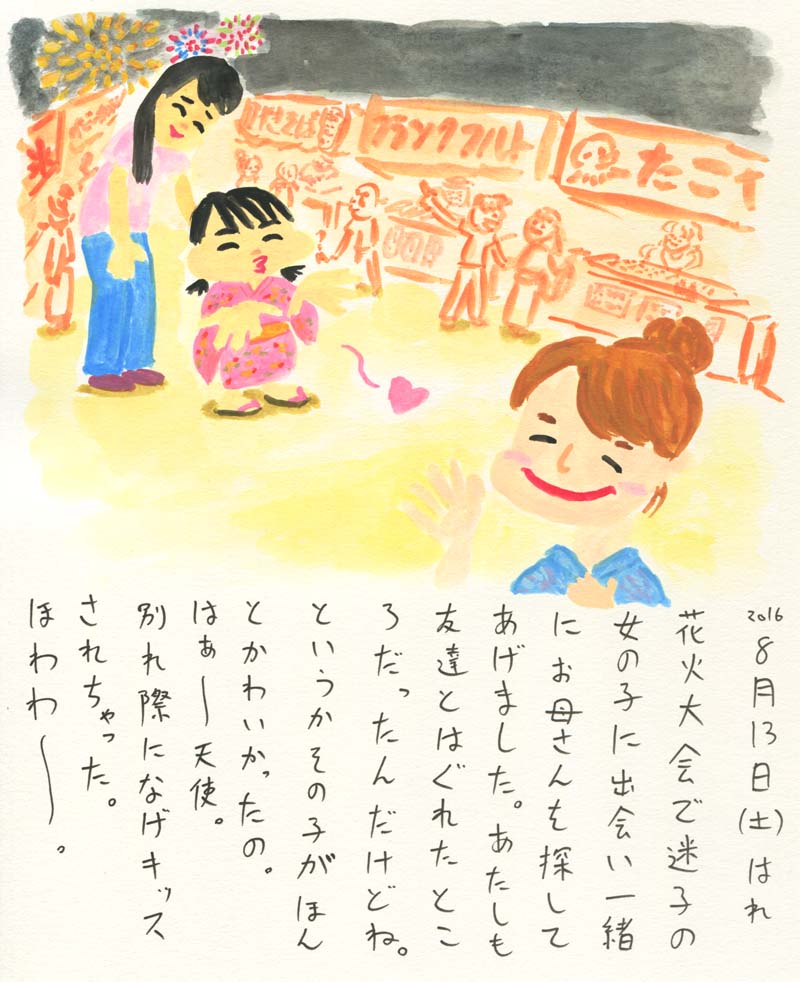 やきそば
フランクフルト
たこ
2016
8月13日(土)はれ
花火大会で迷子の
女の子に出会い一緒
にお母さんを探して
あげました。あたしも
友達とはぐれたとこ
ろだったんだけどね。
というかその子がほん
とかわいかったの。
はぁ〜天使。
別れ際になげキッス
されちゃった。
ほわわ〜。